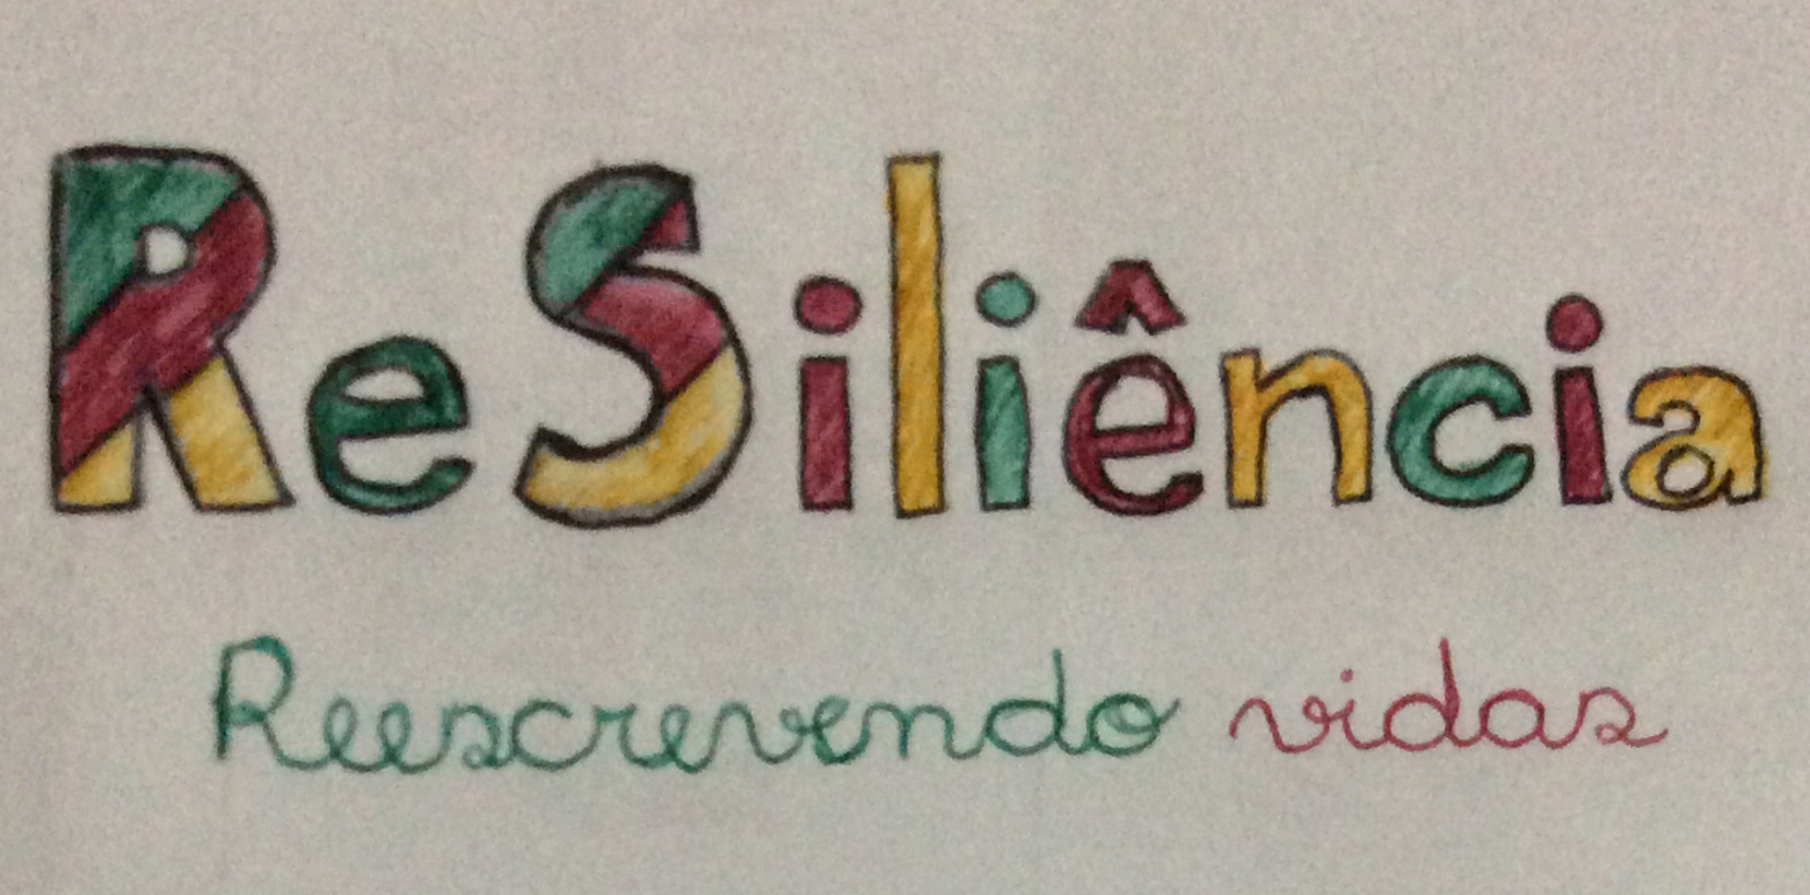 ReSiliência
Reescrevendo vidas